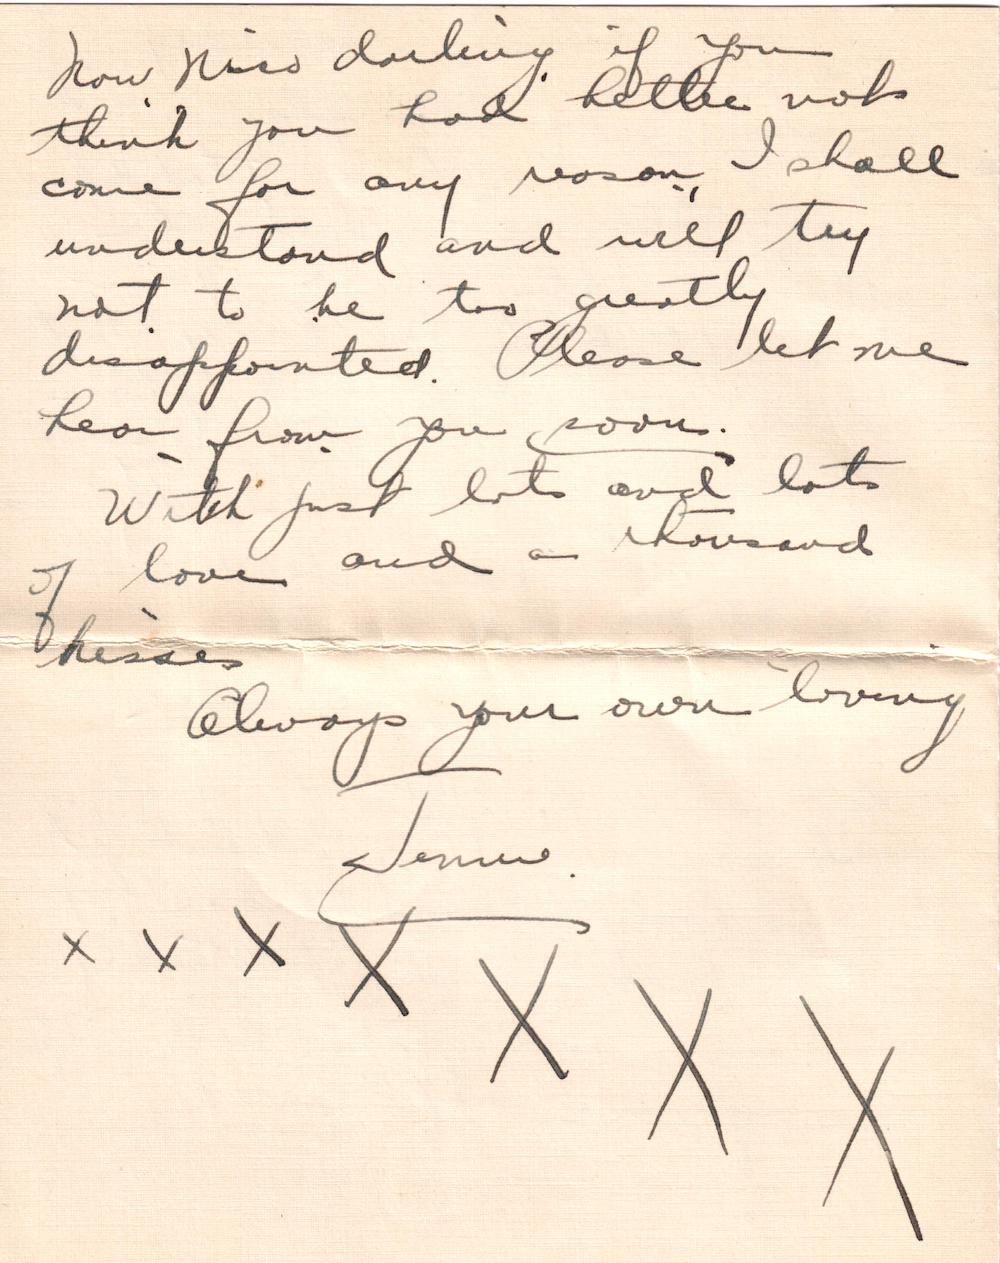 Now Niso darling if you
think you had better not
come for any reason, I shall
understand and will try
not to be too greatly
disappointed. Please let me
hear from you soon.
With just lots and lots
of love and a thousand
kisses
Always your own loving
Jennie.
x x x X X X X